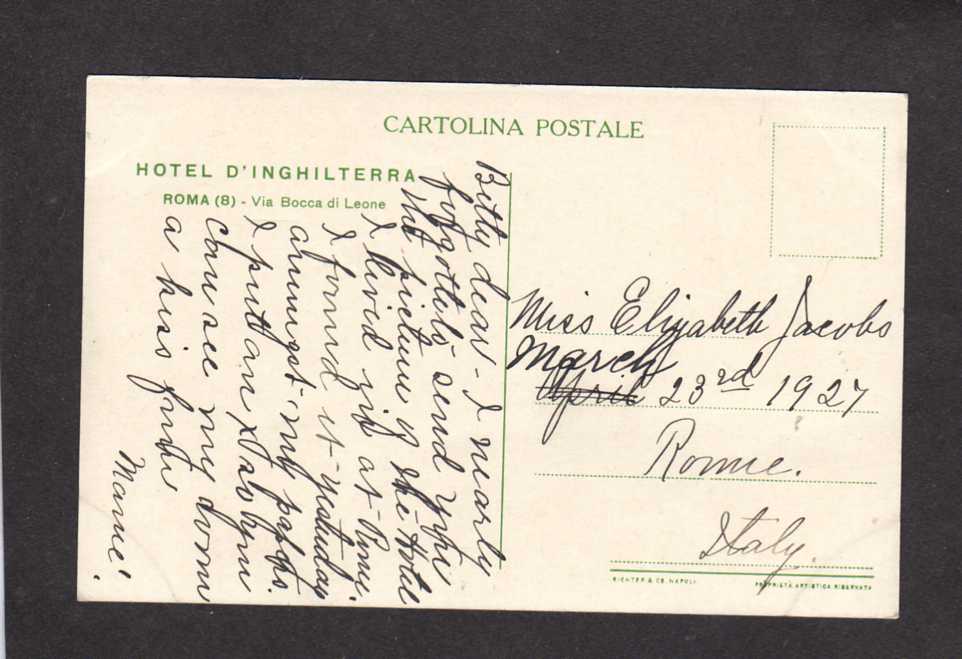 CARTOLINA POSTALE
HOTEL D'INGHILTERRA
ROMA (8) - Via Bocca di Leone
Betty dear - I nearly
forgot to send you
the picture of the Hotel
I lived in at Rome.
I found it yesterday
amongst my papers.
I putt an X so you
can see my
a kiss from
Mame.
Miss Elizabeth Jacobs
March
April 23rd 1927
Rome.
Italy.
RICHTER & CO. NAPOLI
PROPRIETÀ ARTISTICA RISERVATA